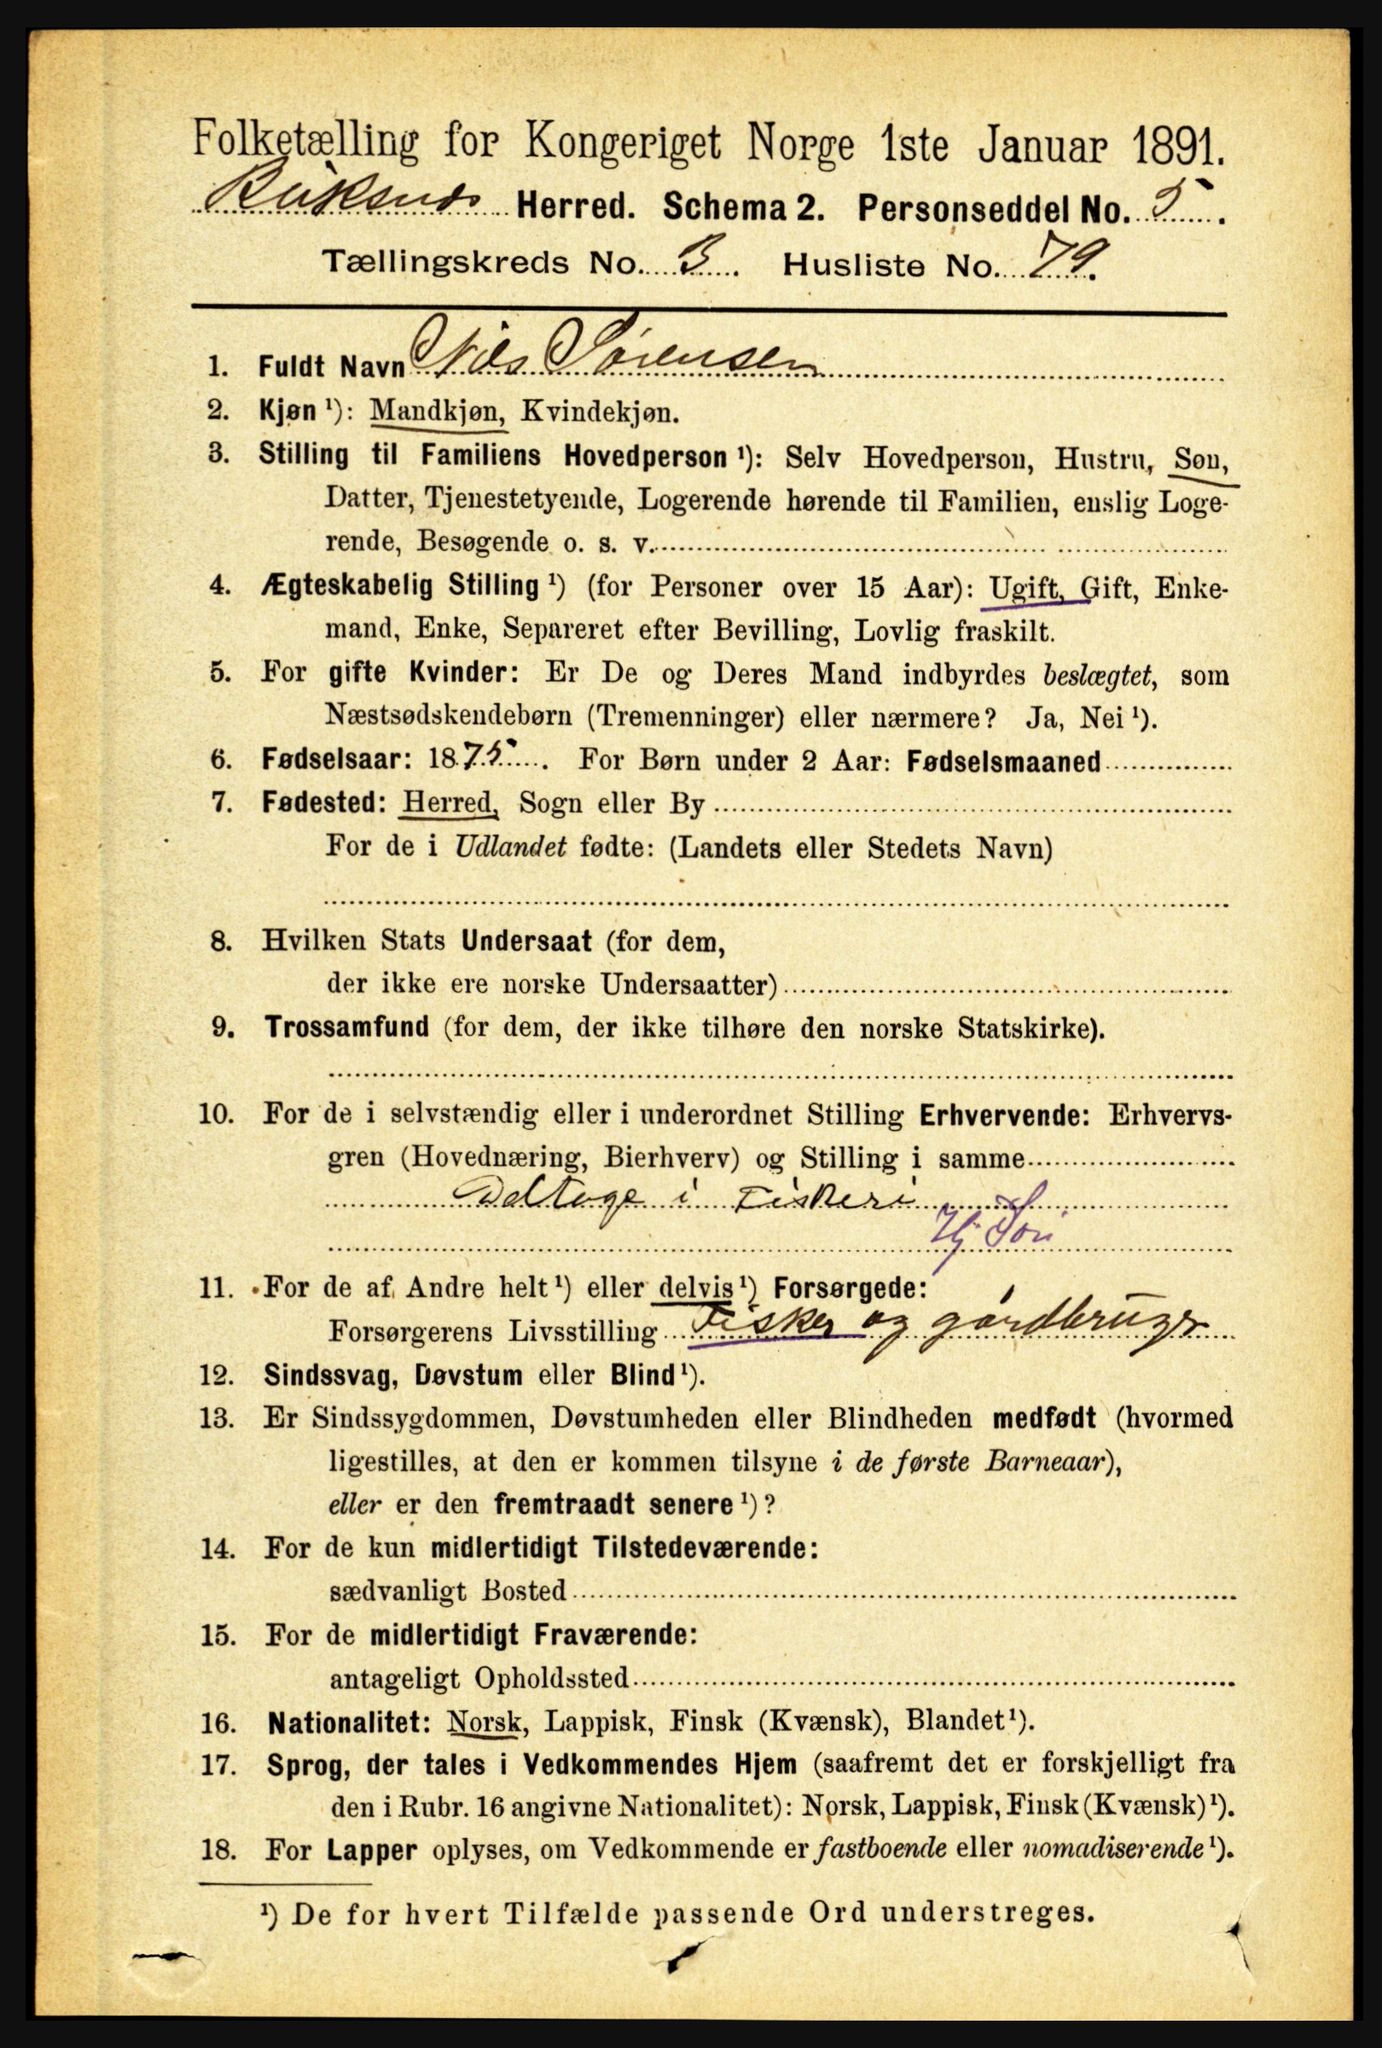 Folketælling for Kongeriget Norge 1ste Januar 1891.
Buksnes Herred. Schema 2. Personseddel No. 5.
Tællingskreds No. 3. Husliste No. 79.
1. Fuldt Navn Nils Sørensen
2. Kjøn ¹): Mandkjøn, Kvindekjøn.
3. Stilling til Familiens Hovedperson ¹): Selv Hovedperson, Hustru, Søn,
Datter, Tjenestetyende, Logerende hørende til Familien, enslig Loge-
rende, Besøgende o. s. v.
4. Ægteskabelig Stilling ¹) (for Personer over 15 Aar): Ugift, Gift, Enke-
mand, Enke, Separeret efter Bevilling, Lovlig fraskilt.
5. For gifte Kvinder: Er De og Deres Mand indbyrdes beslægtet, som
Næstsødskendebørn (Tremenninger) eller nærmere? Ja, Nei ¹).
6. Fødselsaar: 1875. For Børn under 2 Aar: Fødselsmaaned
7. Fødested: Herred, Sogn eller By
For de i Udlandet fødte: (Landets eller Stedets Navn)
8. Hvilken Stats Undersaat (for dem,
der ikke ere norske Undersaatter)
9. Trossamfund (for dem, der ikke tilhøre den norske Statskirke).
10. For de i selvstændig eller i underordnet Stilling Erhvervende: Erhvervs-
gren (Hovednæring, Bierhverv) og Stilling i samme
Deltage i Fiskeri
Hj Søn
11. For de af Andre helt ¹) eller delvis ¹) Forsørgede:
Forsørgerens Livsstilling Fisker og gårdbruger
12. Sindssvag, Døvstum eller Blind ¹).
13. Er Sindssygdommen, Døvstumheden eller Blindheden medfødt (hvormed
ligestilles, at den er kommen tilsyne i de første Barneaar),
eller er den fremtraadt senere ¹)?
14. For de kun midlertidigt Tilstedeværende:
sædvanligt Bosted
15. For de midlertidigt Fraværende:
antageligt Opholdssted
16. Nationalitet: Norsk, Lappisk, Finsk (Kvænsk), Blandet ¹).
17. Sprog, der tales i Vedkommendes Hjem (saafremt det er forskjelligt fra
den i Rubr. 16 angivne Nationalitet): Norsk, Lappisk, Finsk (Kvænsk) ¹).
18. For Lapper oplyses, om Vedkommende er fastboende eller nomadiserende ¹).
¹) De for hvert Tilfælde passende Ord understreges.